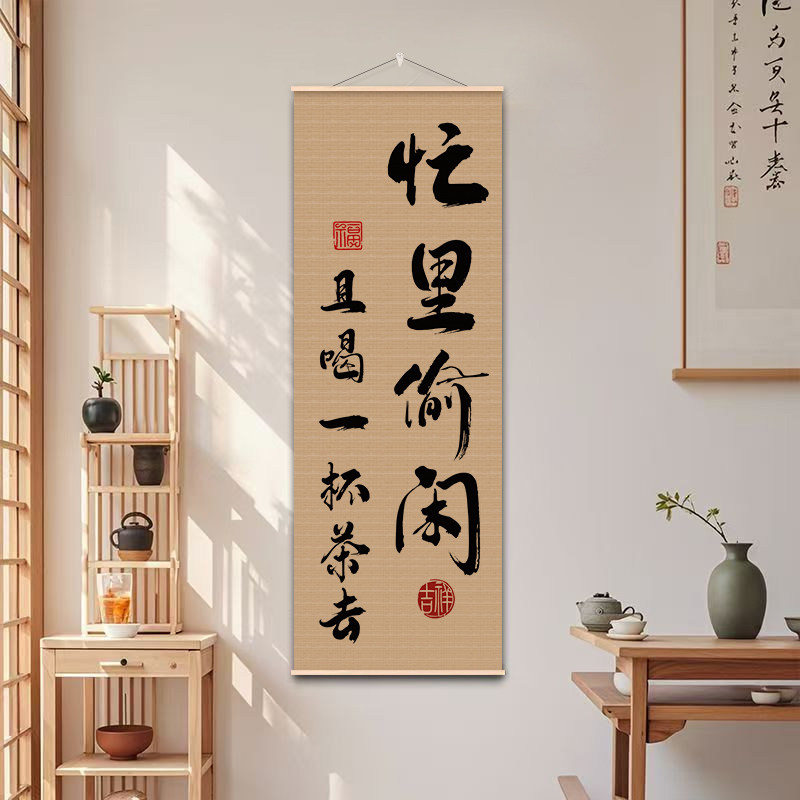 忙里偷闲
吉祥
福
且喝一杯茶去